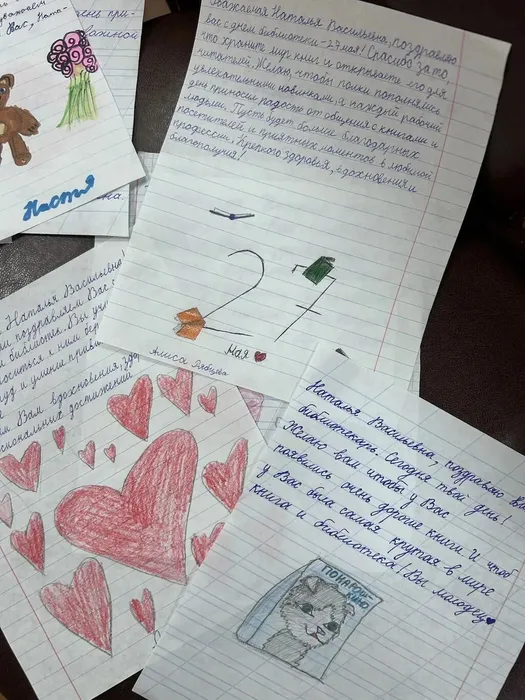 уважаем
Вас, Ната-
очень при-
Настя
Уважаемая Наталья Васильевна, поздравляю
вас с днём библиотеки - 27 мая! Спасибо за то,
что храните мир книг и открываете его для
читателей. Желаю, чтобы полки пополнялись
увлекательными новинками, а каждый рабочий
день приносил радость от общения с книгами и
людьми. Пусть будет больше благодарных
посетителей и приятных моментов в любимой
профессии. Крепкого здоровья, вдохновения и
благополучия!
27
Мая
Алиса
Наталья Васильевна!
поздравляем Вас
библиотек. Вы учи
относиться к ним бер
труд и умение приви
Вам вдохновения, зд
сиональных достижений
Наталья Васильевна, поздравляю вас
библиотекарь. Сегодня твой день!
Желаю вам чтобы у Вас
появились очень дорогие книги И чтоб
у Вас была самая крутая в мире
книга и библиотека! Вы молодец